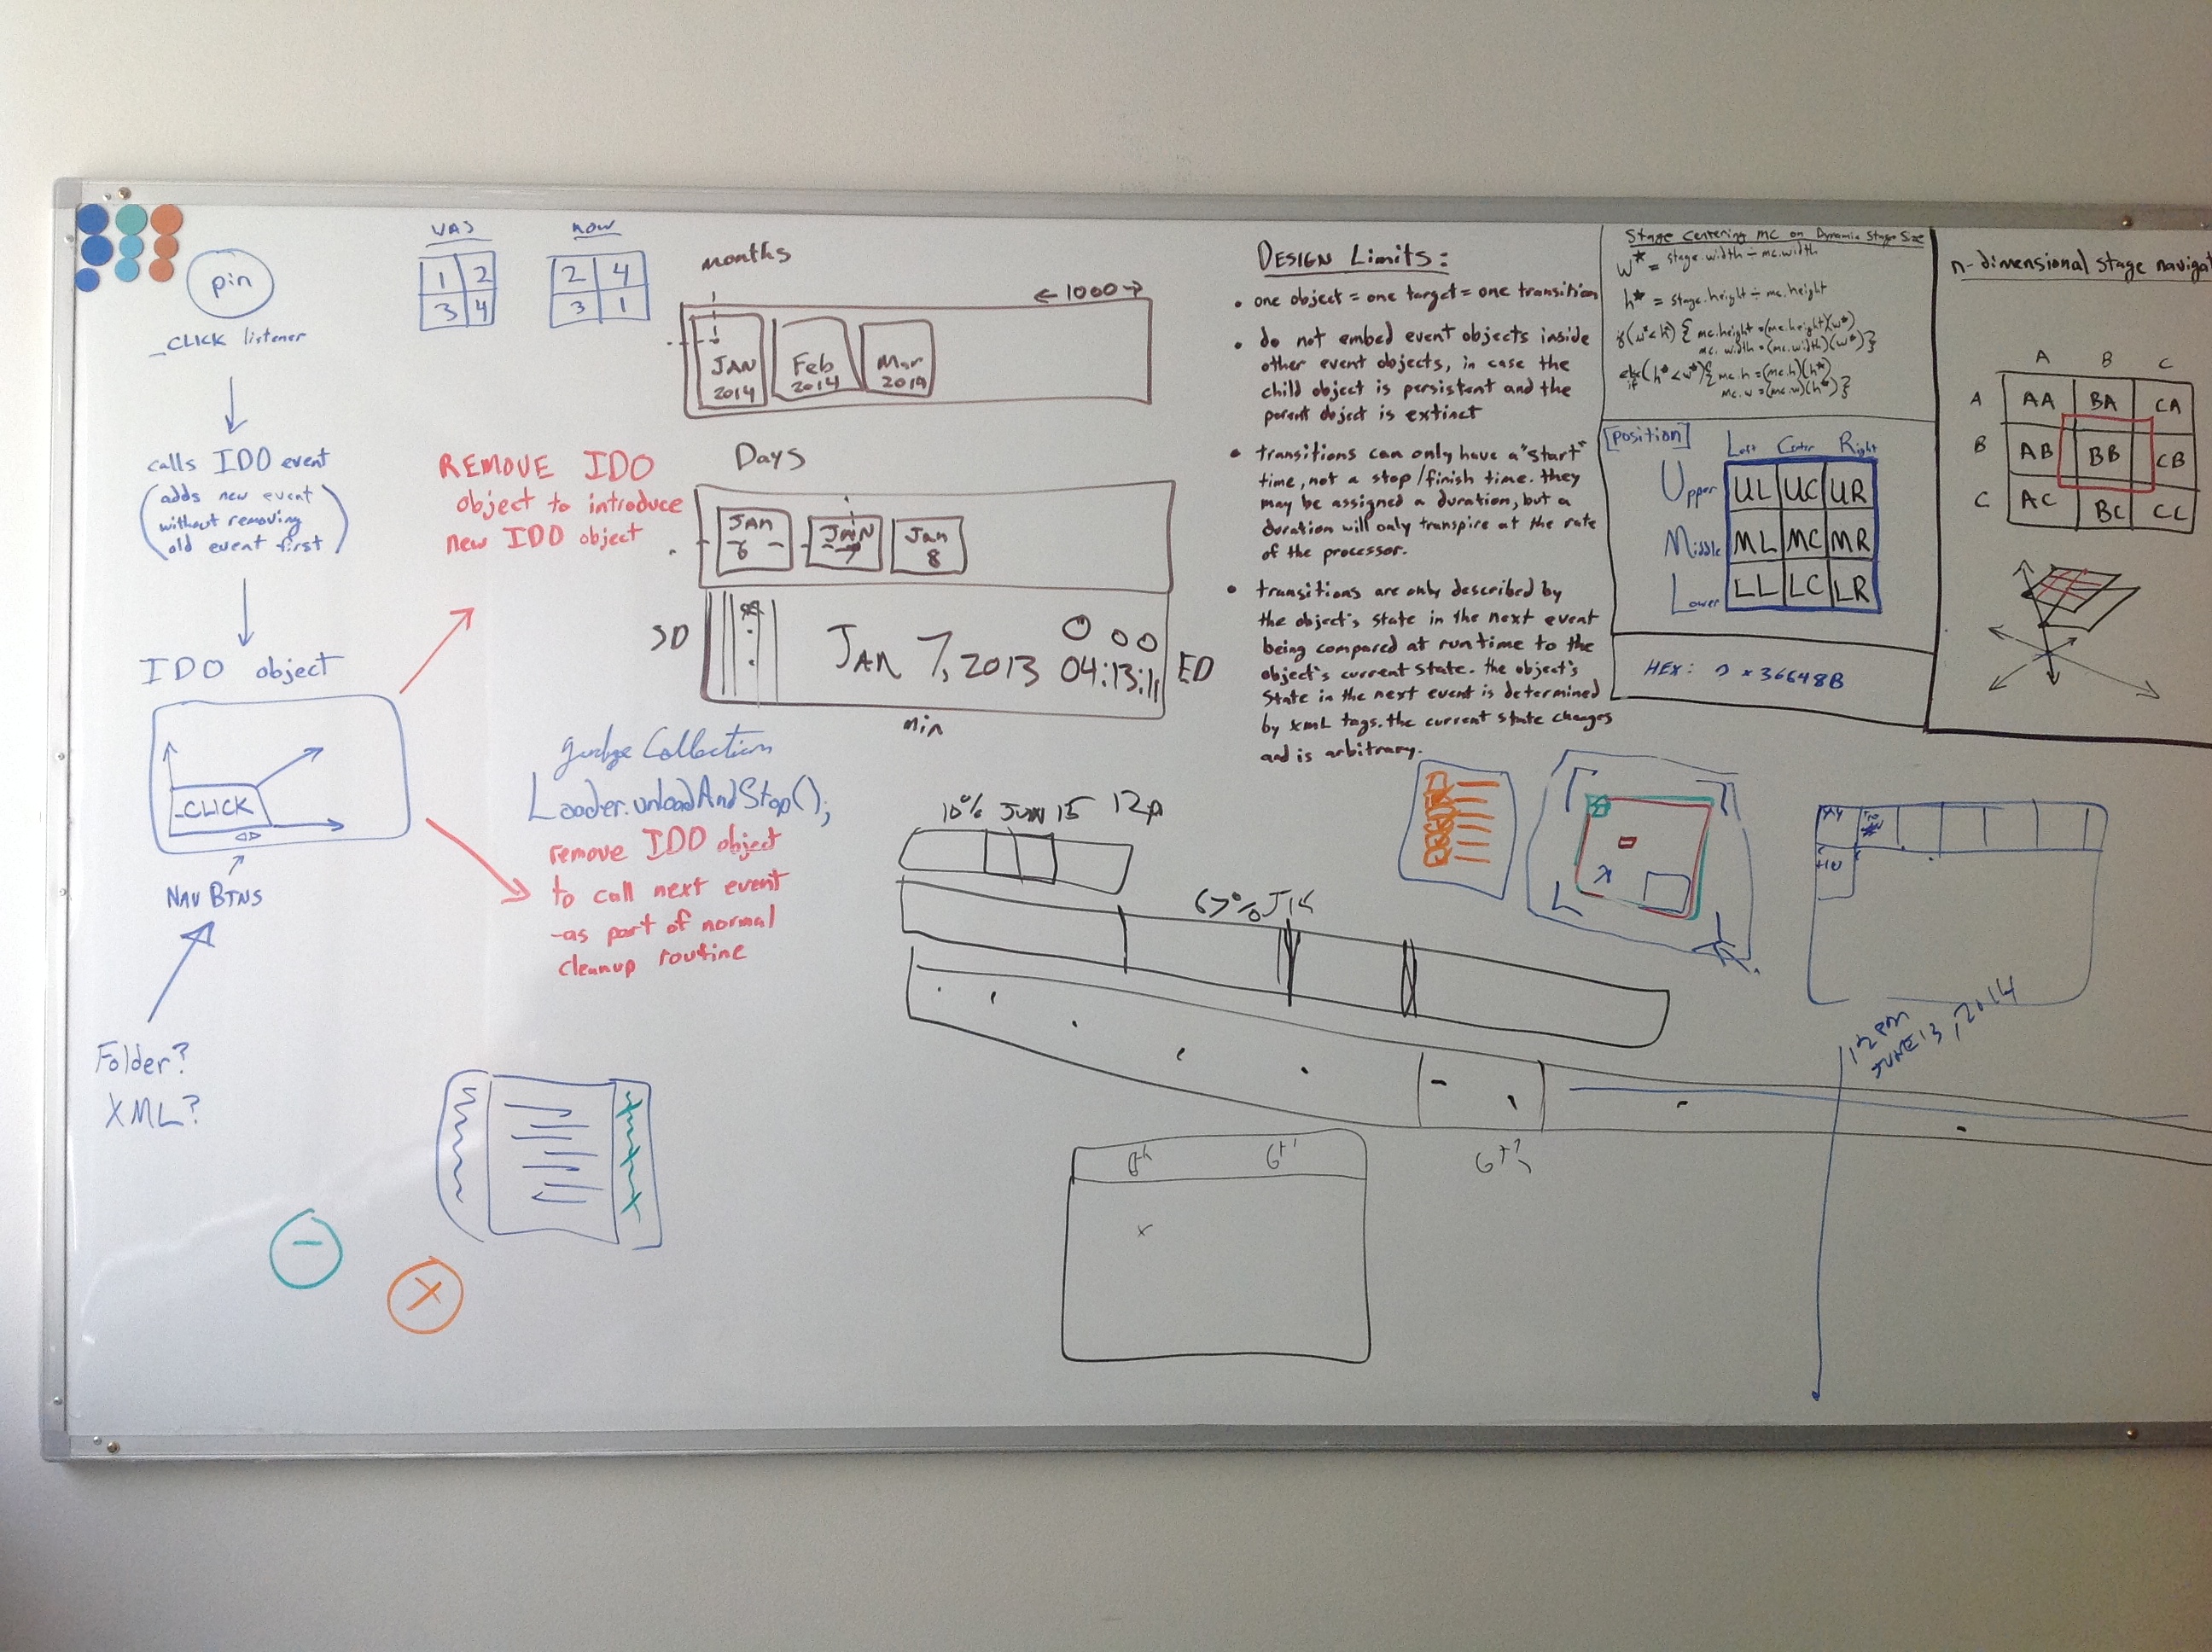 pin
_CLICK listener
calls IDO event
(adds new event
without removing
old event first)
IDO object
_CLICK
NAV BTNS
Folder?
XML?
WAS
1 2
3 4
NOW
2 4
3 1
REMOVE IDO
object to introduce
new IDO object
Collection
Loader.unloadAndStop();
remove IDO object
to call next event
-as part of normal
cleanup routine
months
←1000→
JAN
2014
Feb
2014
Mar
2014
Days
JAN
6
JAN
7
Jan
8
SD
JAN 7, 2013 04:13:11
ED
min
10% JUN 15 12p
67%
6th
6th
DESIGN Limits:
• one object = one target = one transition
• do not embed event objects inside
other event objects, in case the
child object is persistent and the
parent object is extinct
• transitions can only have a "start"
time, not a stop/finish time. they
may be assigned a duration, but a
duration will only transpire at the rate
of the processor.
• transitions are only described by
the object's state in the next event
being compared at runtime to the
object's current state. the object's
State in the next event is determined
by xmL tags. the current state changes
and is arbitrary.
Stage Centering mc on Dynamic Stage Size
w* = stage.width ÷ mc.width
h* = stage.height ÷ mc.height
if(w*<h*) { mc.height=(mc.height)(w*)
mc.width=(mc.width)(w*) }
else if(h*<w*){ mc.h=(mc.h)(h*)
mc.w=(mc.w)(h*) }
[position]
Left Center Right
Upper UL UC UR
Middle ML MC MR
Lower LL LC LR
HEX: 0x36648B
n-dimensional stage navigat
A B C
A AA BA CA
B AB BB CB
C AC BC CC
+10
12pm
JUNE 13, 2014